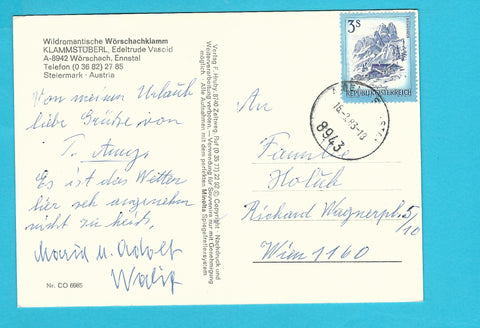 Wildromantische Wörschachklamm
KLAMMSTÜBERL, Edeltrude Vasold
A-8942 Wörschach, Ennstal
Telefon (0 36 82) 27 85
Steiermark · Austria
Von meinen Urlaub
liebe Grüße von
T.
Es ist das Wetter
hier sehr angenehm
nicht zu heiß.
Maria u. Adolf
Nr. CO 6985
Verlag F. Hruby, 8740 Zeltweg, Ruf (0 35 77) 22 92 © Copyright · Nachdruck und
Weiterverarbeitung verboten. · Verwendung für Souvenirs nur mit Genehmigung
möglich. · Alle Aufnahmen mit dem perfekten Minolta Spiegelreflexsystem
3S
REPUBLIK ÖSTERREICH
83-13
8943
An
Familie
Holub
Richard Wagnerpl. 5/10
Wien 1160